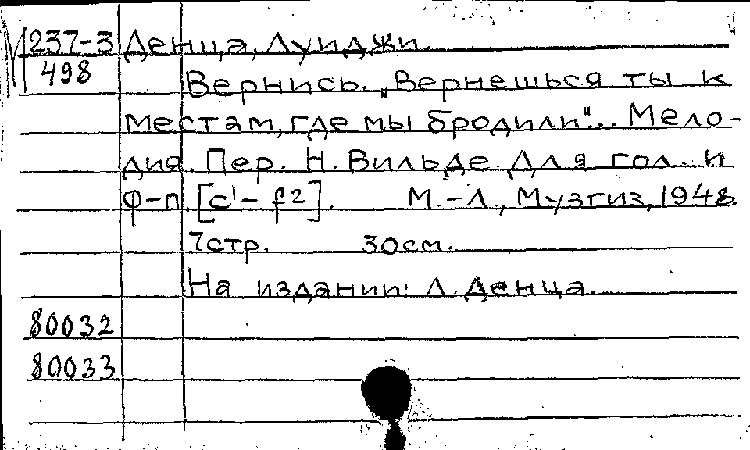 237-3 Денца, Луиджи.
498 Вернись. „Вернешься ты к
местам, где мы бродили"... Мело-
дия. Пер. Н. Вильде. Для гол. и
ф-п. [c¹- f²]. М.-Л., Музгиз, 1948.
7стр. 30см.
На издании: Л. Денца.
80032
80033